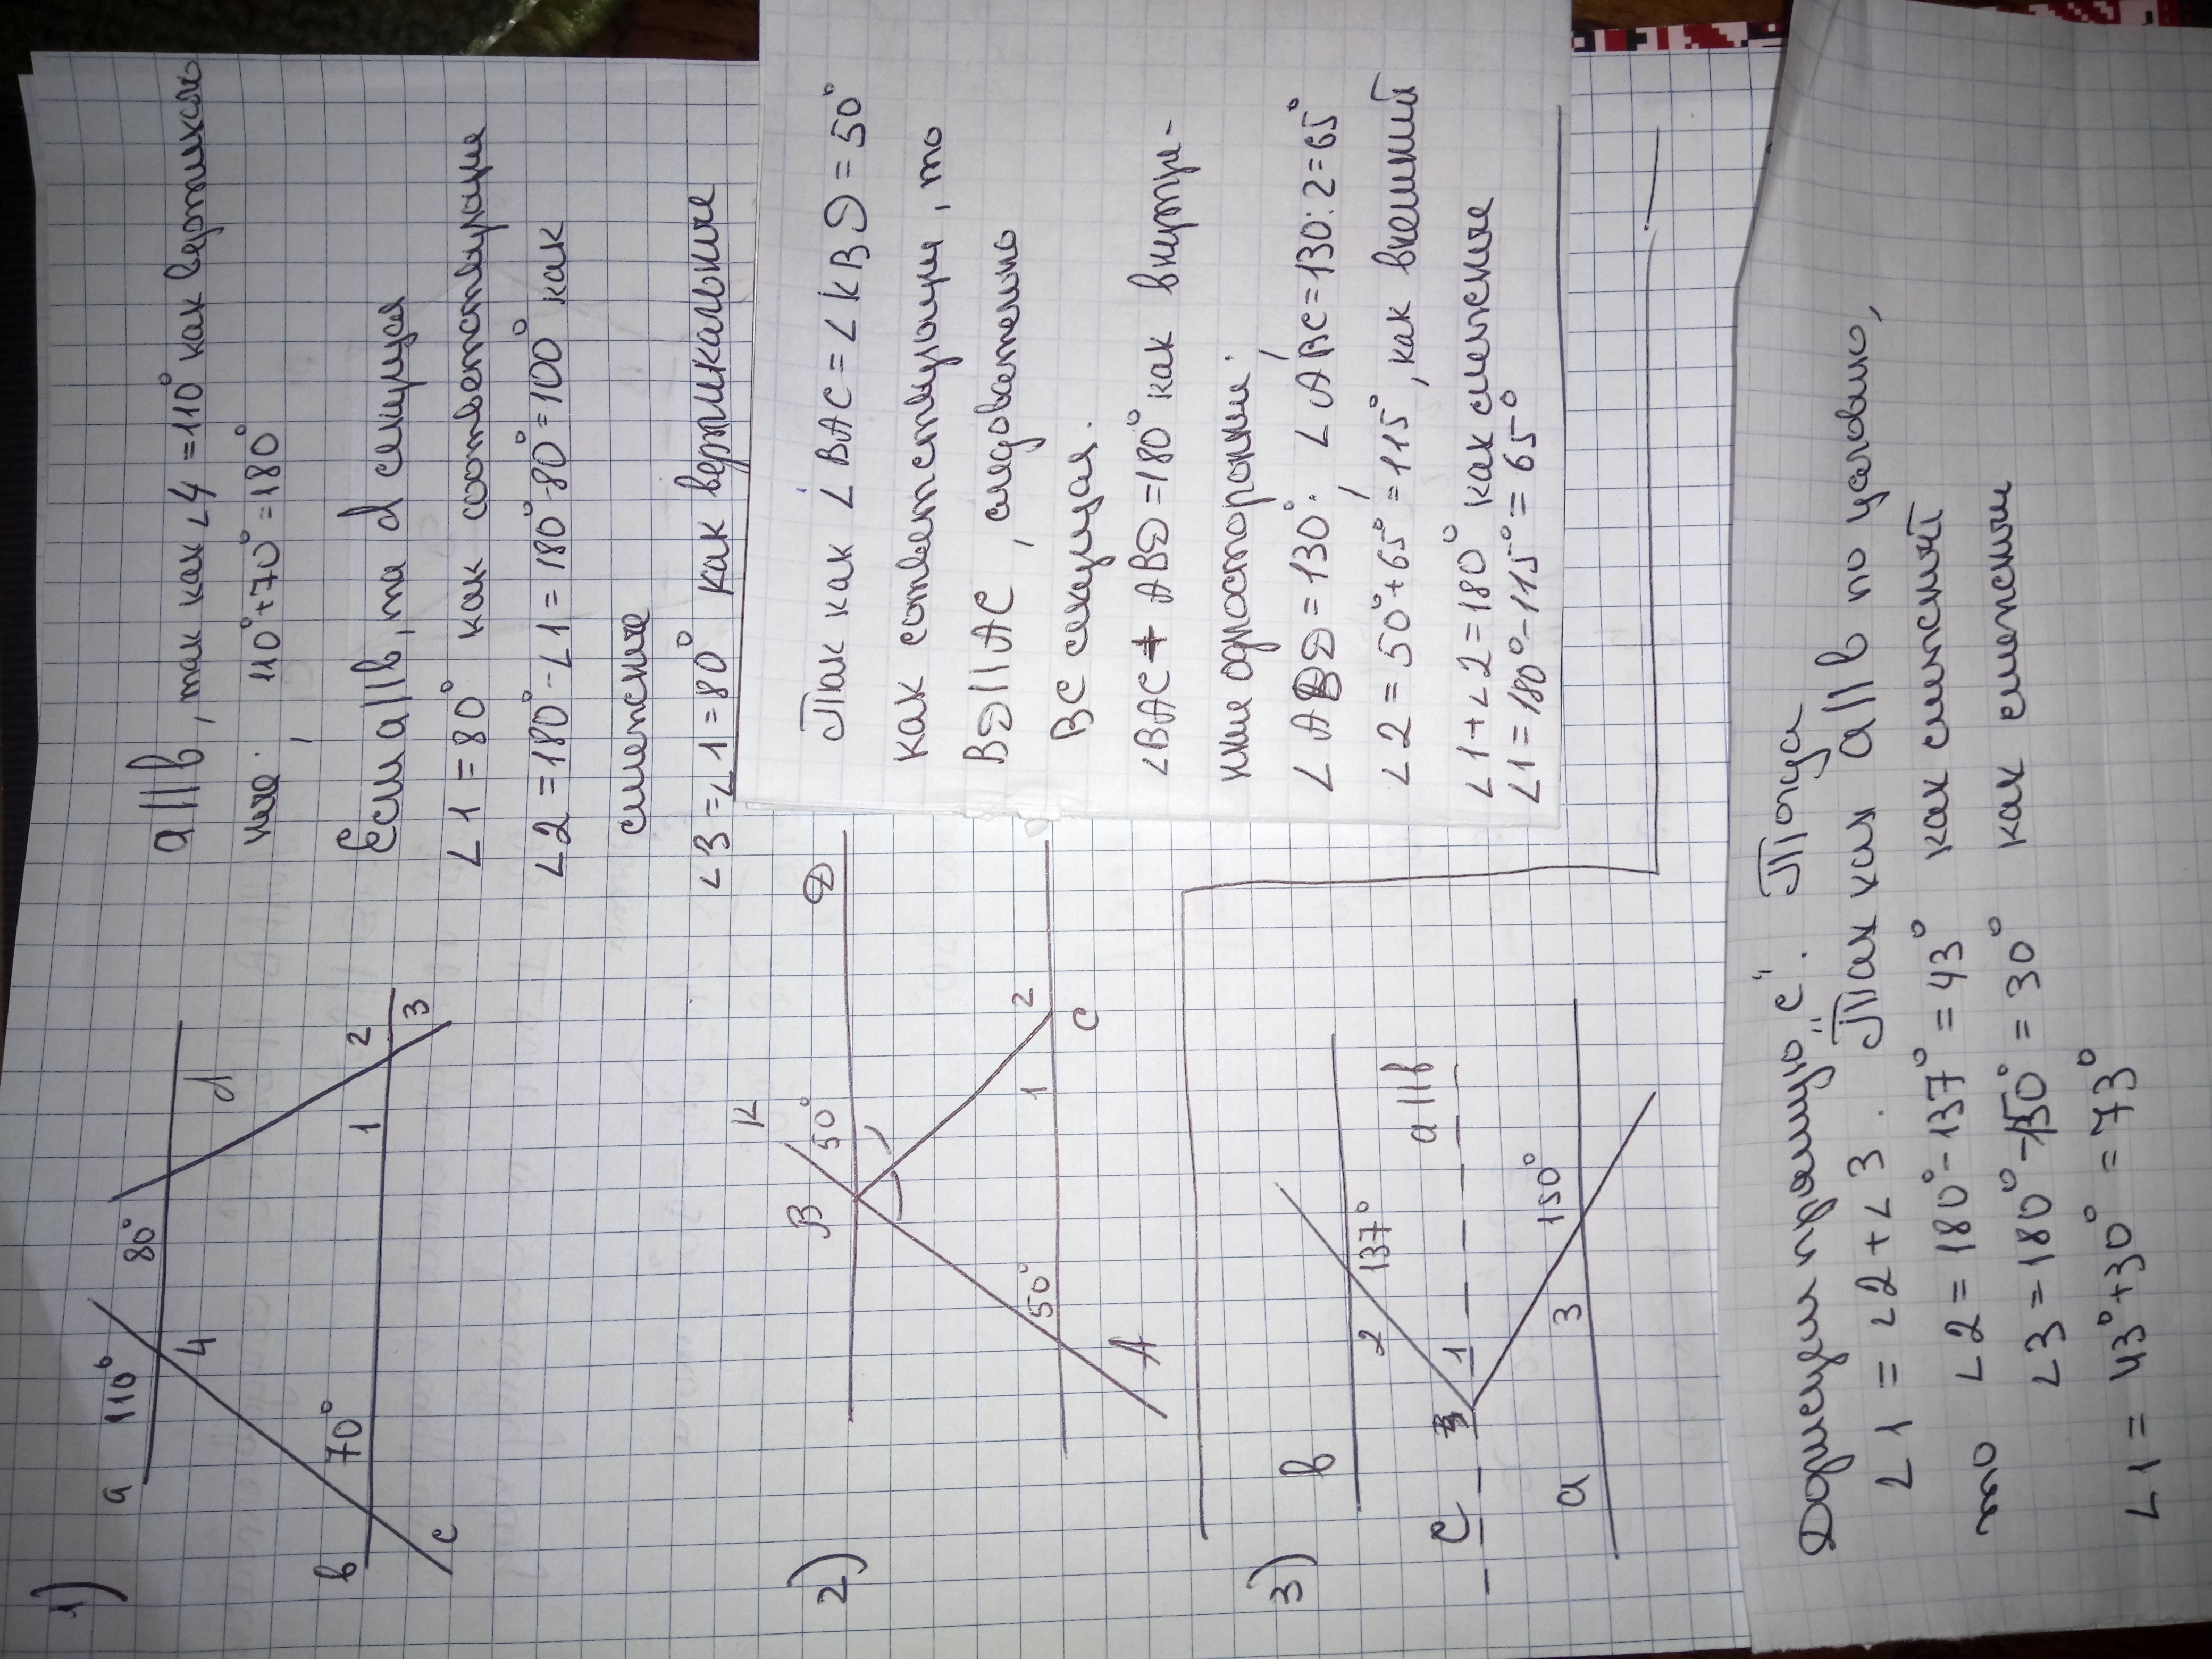 1)
a 110° 80°
4 d
b 70° 1 2
c 3
a||b, так как ∠4 = 110° как вертикаль
ные. 110° + 70° = 180°
Если a||b, то d секущая
∠1 = 80° как соответствующие
∠2 = 180° - ∠1 = 180° - 80° = 100° как
смежные
∠3 = ∠1 = 80° как вертикальные
2)
K
B 50° D
50° 1 2
A C
Так как ∠BAC = ∠KBD = 50°
как соответствующие, то
BD||AC, следовательно
BC секущая.
∠BAC + ABD = 180° как внутре-
нние односторонние.
∠ABD = 130°. ∠ABC = 130:2 = 65°
∠2 = 50° + 65° = 115°, как внешний
∠1 + ∠2 = 180° как смежные
∠1 = 180° - 115° = 65°
3)
b 2 137°
a||b
c 1
a 3 150°
Дорисуем прямую "c". Тогда
∠1 = ∠2 + ∠3. Так как a||b по условию,
то ∠2 = 180° - 137° = 43° как смежный
∠3 = 180° - 150° = 30° как смежный
∠1 = 43° + 30° = 73°